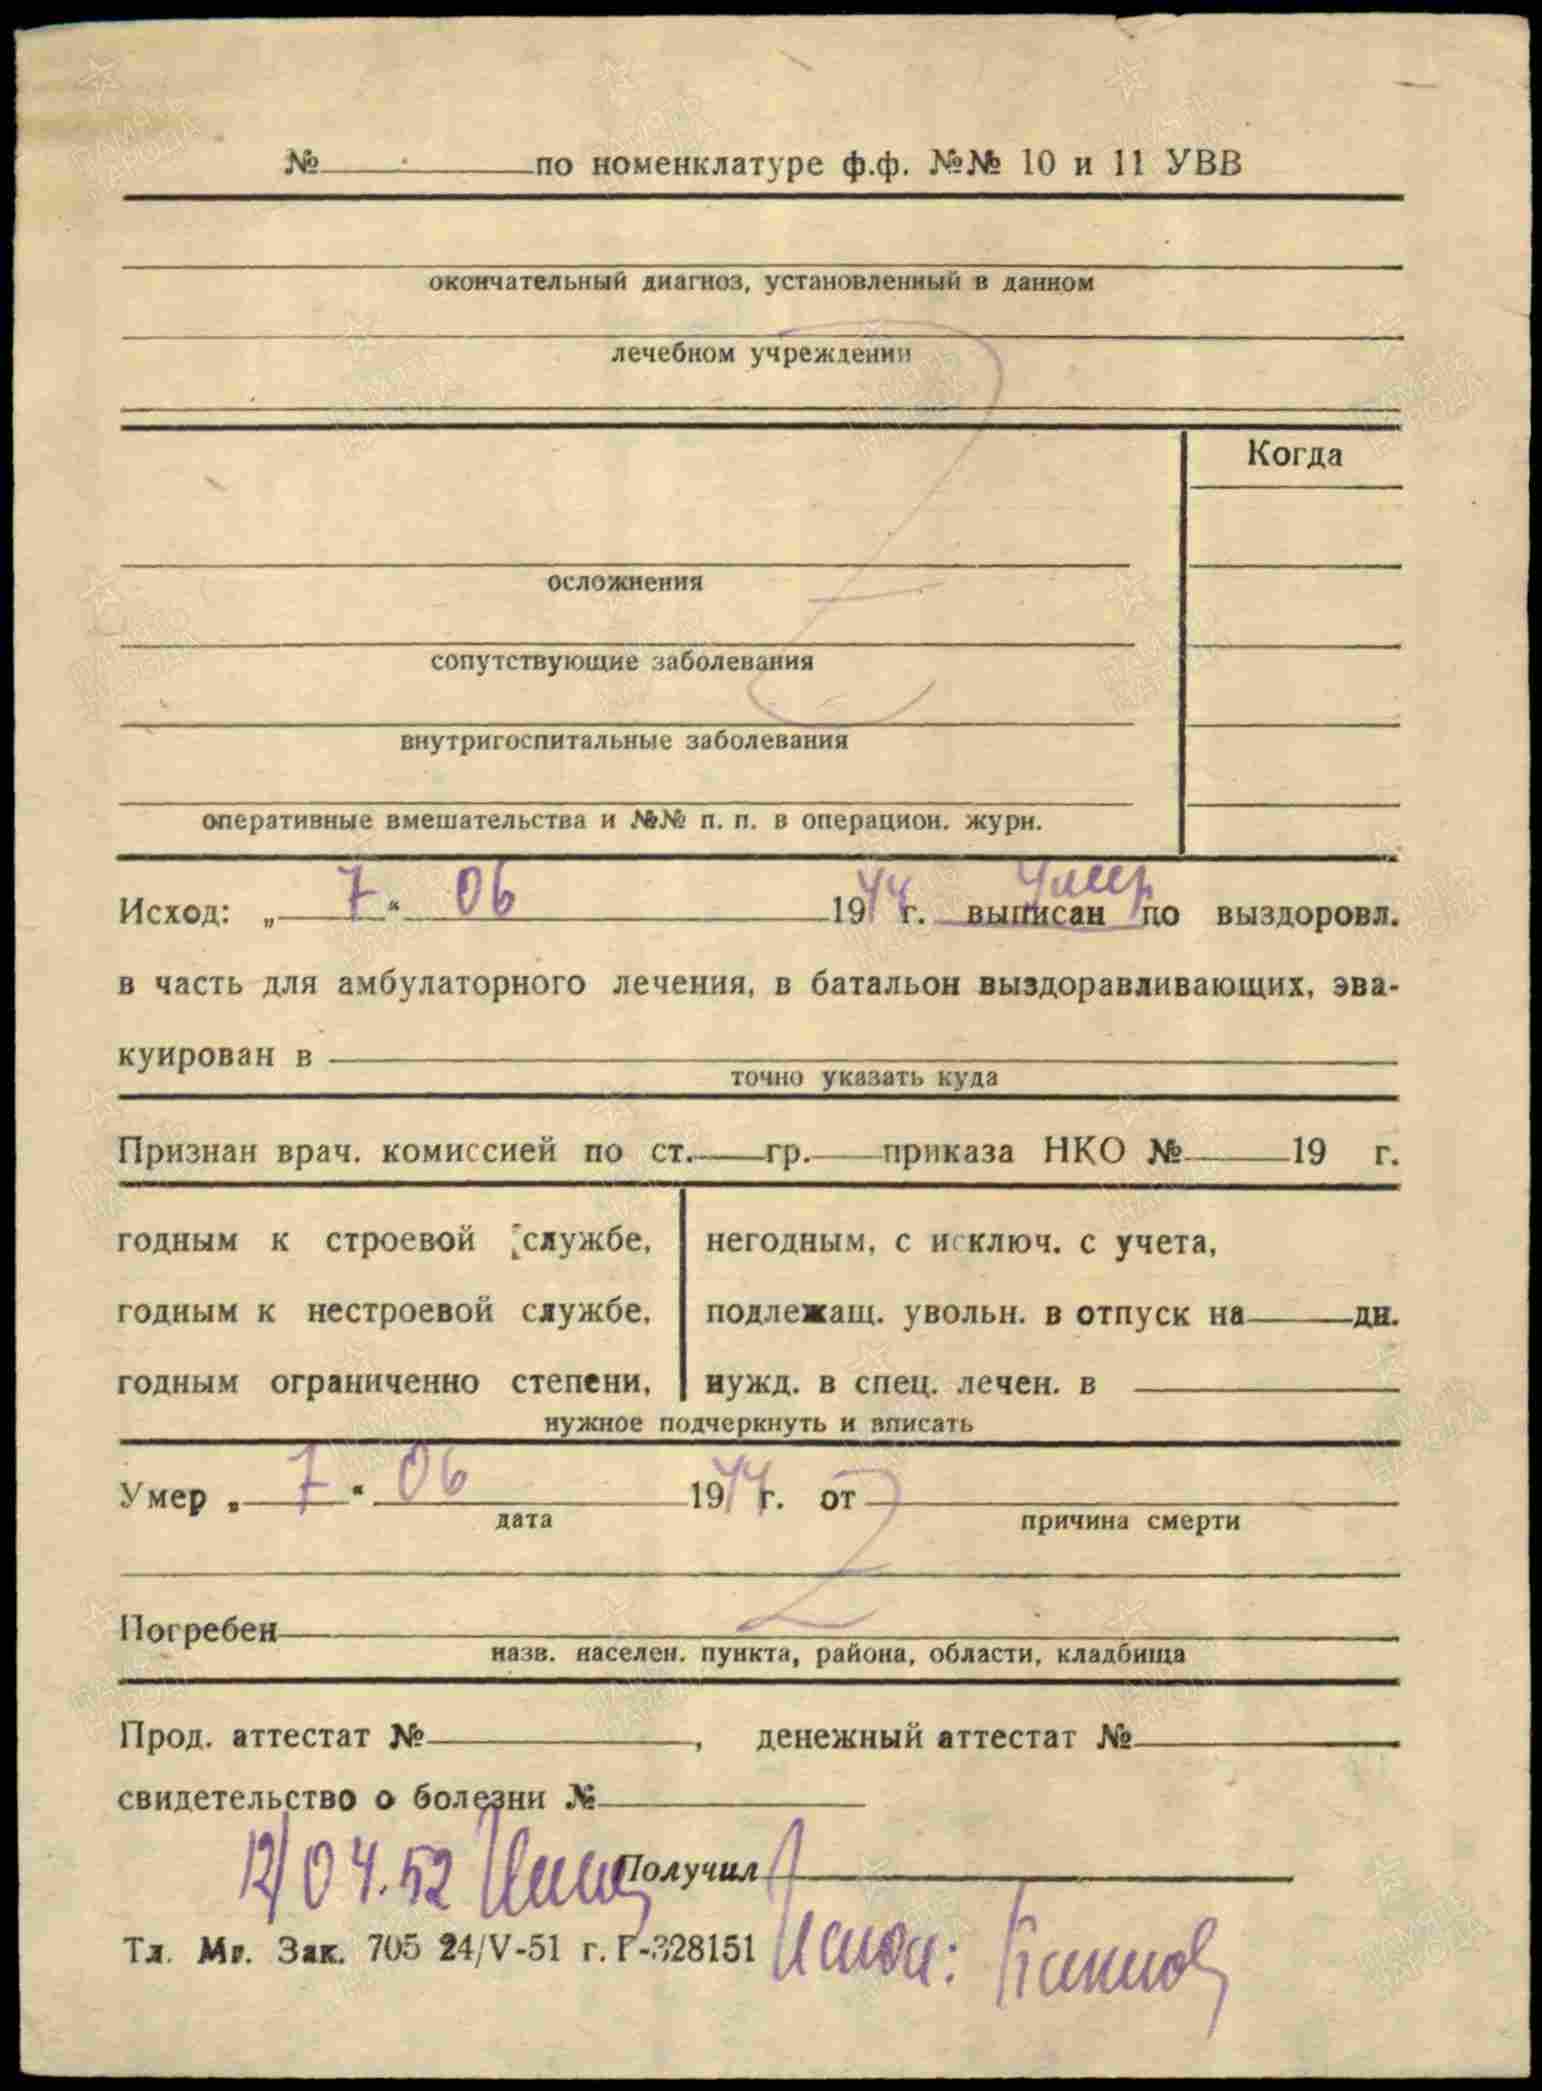 № по номенклатуре ф.ф. №№ 10 и 11 УВВ
окончательный диагноз, установленный в данном
лечебном учреждении
Когда
осложнения
сопутствующие заболевания
внутригоспитальные заболевания
оперативные вмешательства и №№ п. п. в операцион. журн.
умер
Исход: „ 7 “ 06 1944 г. выписан по выздоровл.
в часть для амбулаторного лечения, в батальон выздоравливающих, эва-
куирован в
точно указать куда
Признан врач. комиссией по ст. гр. приказа НКО № 19 г.
годным к строевой службе, негодным, с исключ. с учета,
годным к нестроевой службе, подлежащ. увольн. в отпуск на дн.
годным ограниченно степени, нужд. в спец. лечен. в
нужное подчеркнуть и вписать
Умер „ 7 “ 06 1944 г. от
дата причина смерти
Погребен
назв. населен. пункта, района, области, кладбища
Прод. аттестат № , денежный аттестат №
свидетельство о болезни №
12/04.52 Получил
Тл. Мг. Зак. 705 24/V-51 г. Г-328151
ПАМЯТЬ НАРОДА